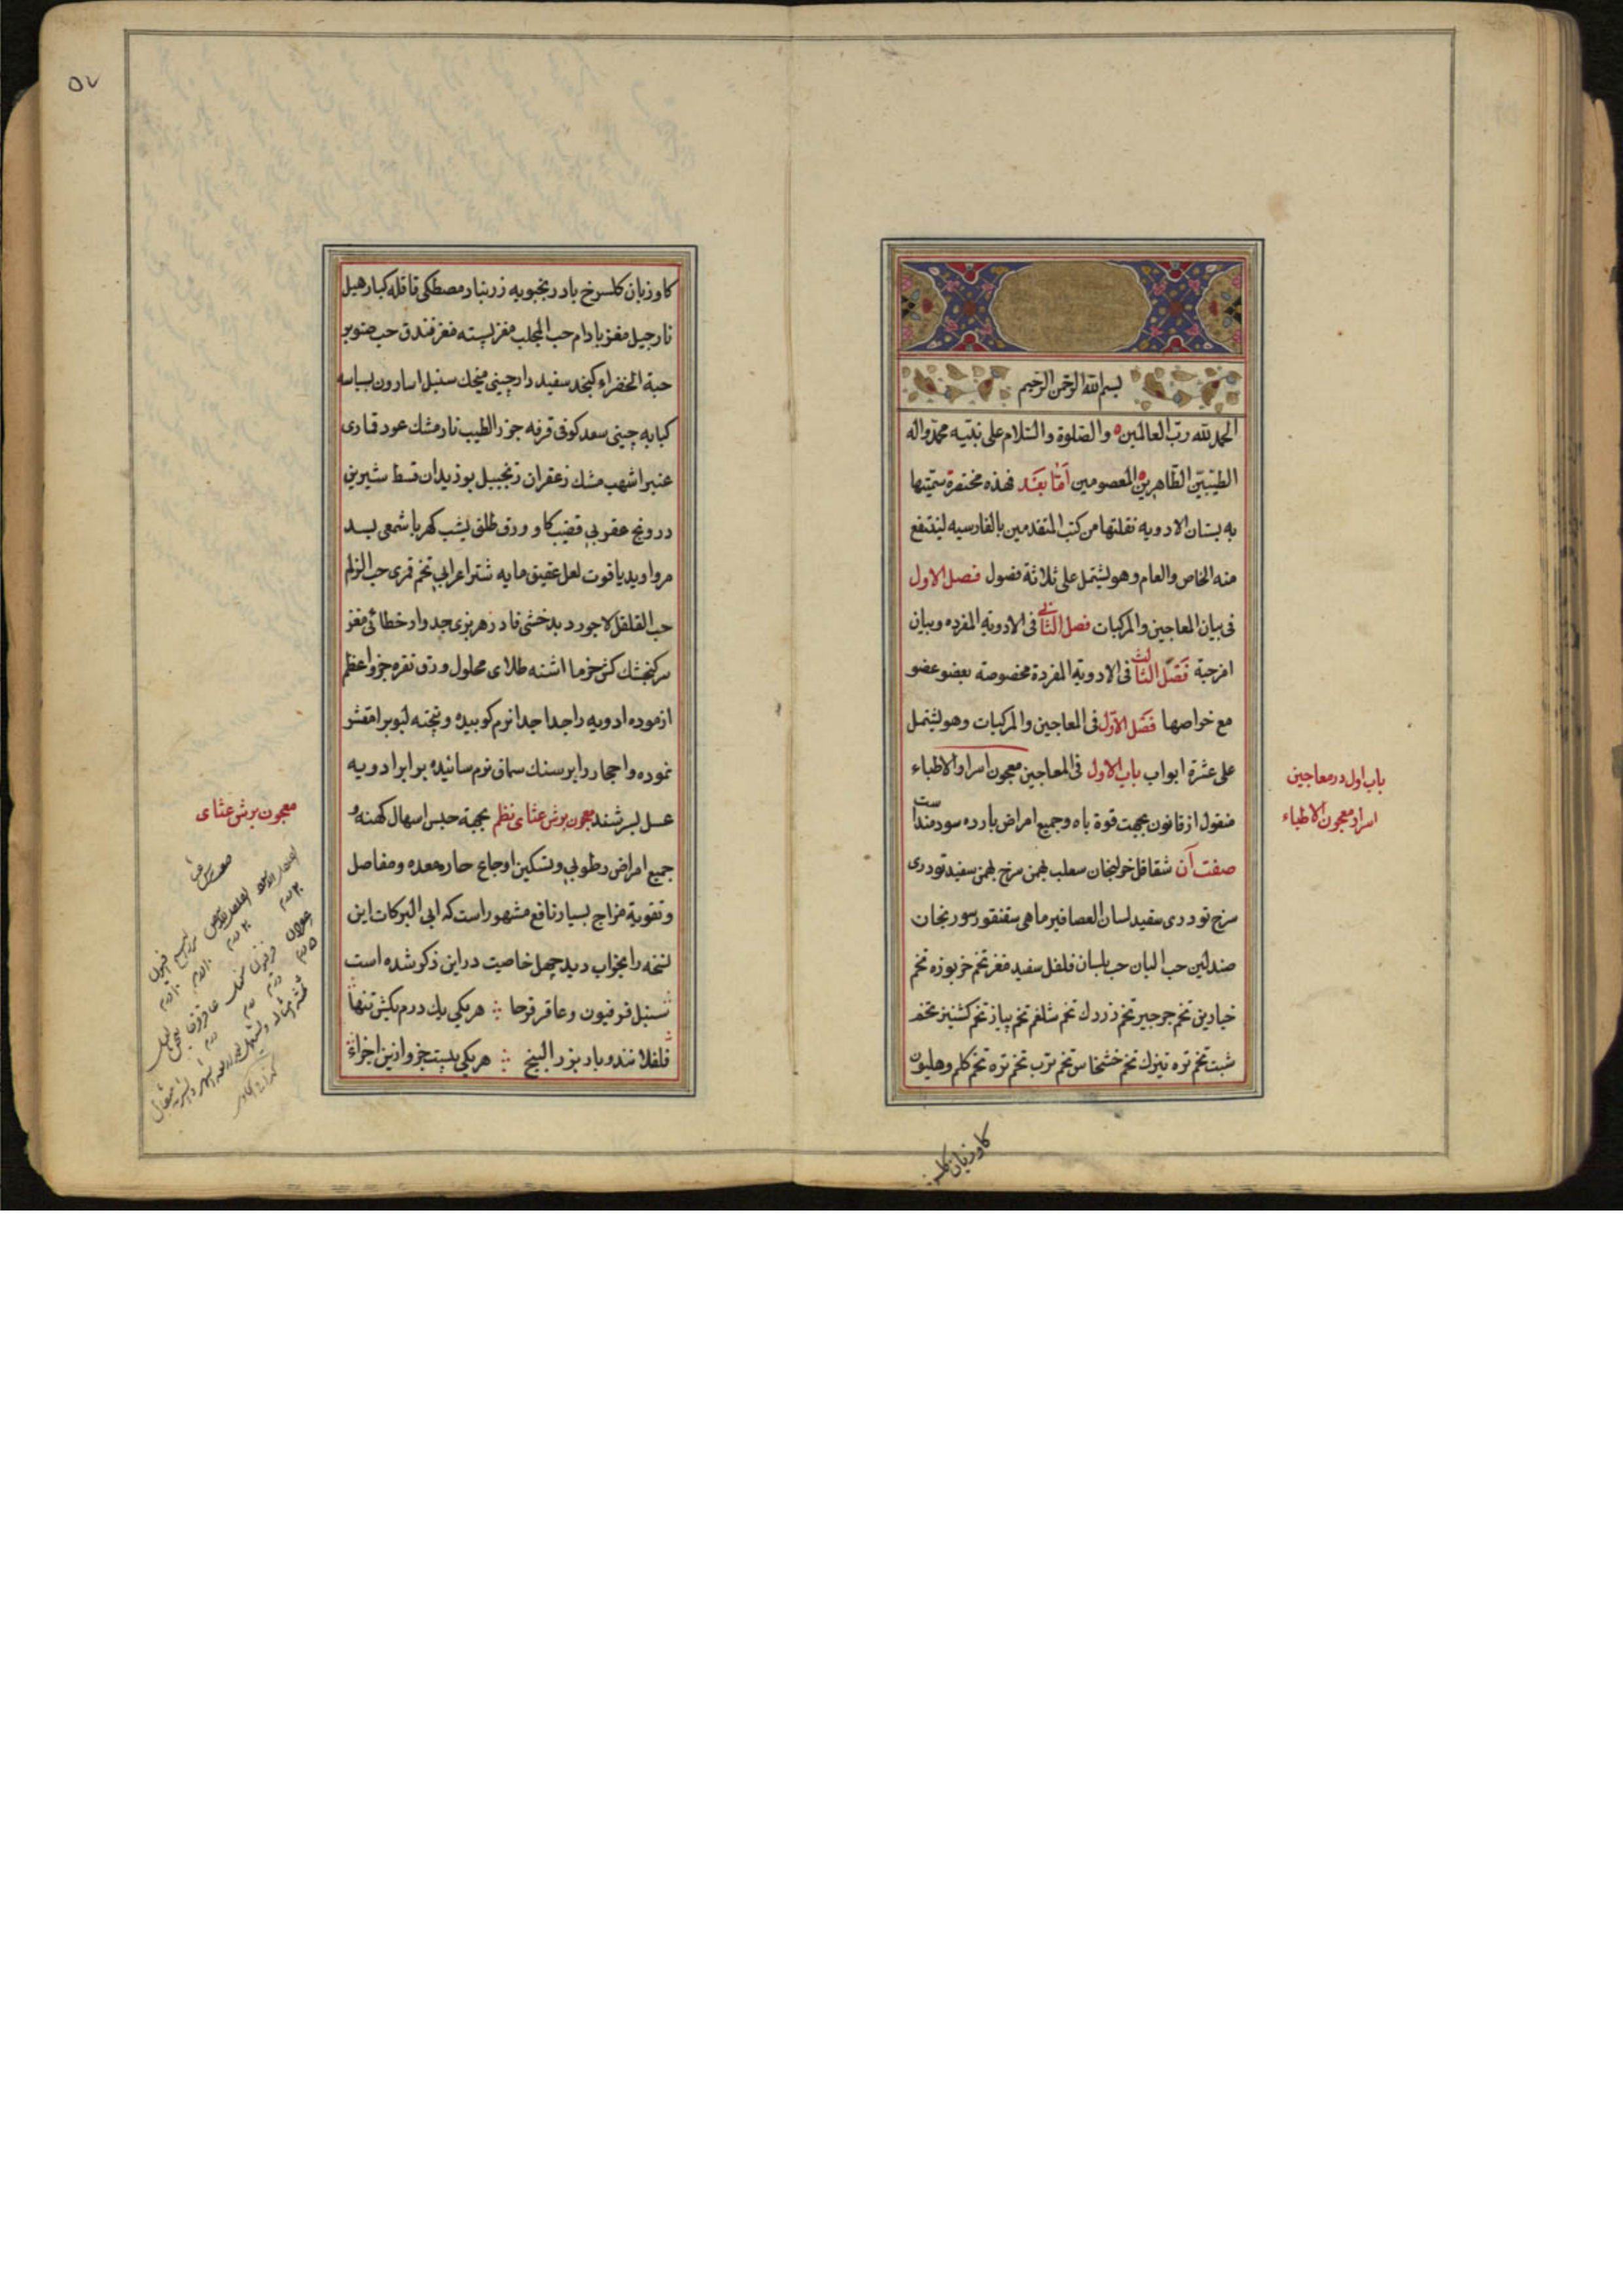 بسم الله الرحمن الرحيم
الحمد لله ربّ العالمين ه والصلوة والسّلام على نبيّه محمّد واله
الطّيّبين الطّاهرين ه المعصومين امّا بعد فهذه مختصرة سمّيتها
به بستان الادويه نقلتها من كتب المتقدمين بالفارسيه لينتفع
منه الخاص والعام وهو يشتمل على ثلاثة فصول فصل الاول
فى بيان المعاجين والمركبات فصل الثّانى فى الادوية المفرده وبيان
امزجة فصل الثالث فى الادوية المفردة مخصوصة بعضو عضو
مع خواصها فصل الاوّل فى المعاجين والمركبات وهو يشتمل
على عشرة ابواب باب الاول فى المعاجين معجون اسرار الاطباء
منقول از قانون بجهت قوة باه وجميع امراض بارده سودمند است
صفت آن شقاقل خولنجان سعلب بهمن سرخ بهمن سفيد تودرى
سرخ تودرى سفيد لسان العصافير ماهى سقنقور سورنجان
صندلين حب البان حب بلسان فلفل سفيد مغز تخم خربوزه تخم
خيارين تخم جرجير تخم زردك تخم شلغم تخم پياز تخم كشنيز تخم
شبت تخم تره تيزك تخم خشخاش تخم ترب تخم تره تخم كلم وهليون
كاوزبان كلسرخ
باب اول در معاجين
اسرار معجون الاطباء
٥٧
كاوزبان كلسرخ بادرنجبويه زرنباد مصطكى قاقله كبار هيل
نارجيل مغز بادام حب المحلب مغز پسته مغز فندق حب صنوبر
حبة الخضراء كنجد سفيد دارچينى ميخك سنبل اسارون بسباسه
كبابه چينى سعد كوفى قرفه جوز الطيب نارمشك عود قمارى
عنبر اشهب مشك زعفران زنجبيل بوزيدان قسط شيرين
درونج عقربى قضيب كاو ورق طلق يشب كهربا شمعى بسد
مرواريد ياقوت لعل عقيق مايه شتر اعرابى تخم قرى حب الزلم
حب القلقل لاجورد بدخشى فادزهر بزى جدوار خطائى مغز
سر كنجشك كش خرما اشنه طلاى محلول ورق نقره جزو اعظم
ازموده ادويه را جدا جدا نرم كوبيده و پخته لبوب را مقشر
نموده واحجار را بر سنك سماق نرم سائيده برابر ادويه
عسل بسرشند معجون برش عثاى نظم بجهة حبس اسهال كهنه و
جميع امراض رطوبى وتسكين اوجاع حار معده ومفاصل
وتقوية مزاج بسيار نافع مشهور است كه ابى البركات اين
نسخه را بخواب ديد چهل خاصيت در اين ذكر شده است
سنبل فرفيون وعاقرقرحا ∴ هر يكى يك درم بكش تنها
فلفلانند وباد بزر البنج ∴ هر يكى بيست جزو ازين اجزاء
معجون برش عثاى